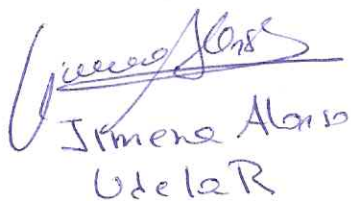 Jimena Alonso
Jimena Alonso
UdelaR